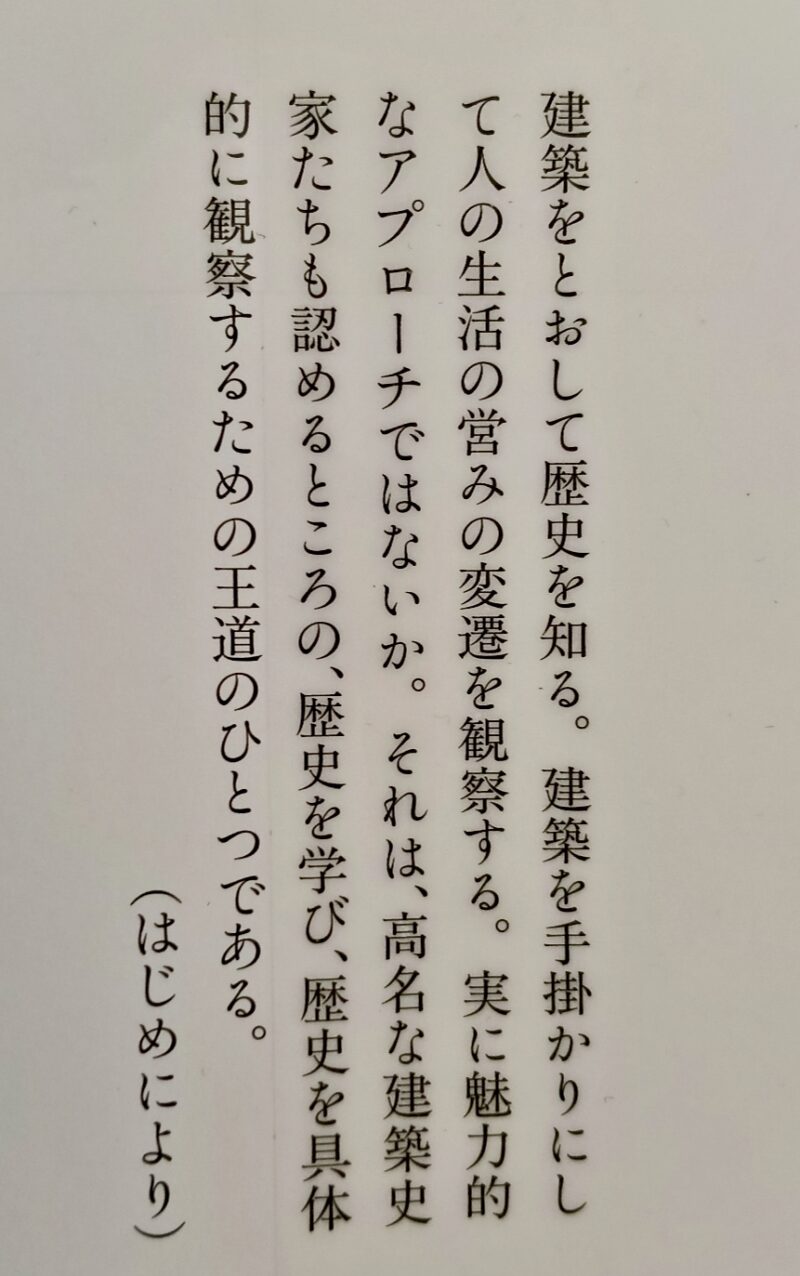 建築をとおして歴史を知る。建築を手掛かりにし
て人の生活の営みの変遷を観察する。実に魅力的
なアプローチではないか。それは、高名な建築史
家たちも認めるところの、歴史を学び、歴史を具体
的に観察するための王道のひとつである。
（はじめにより）